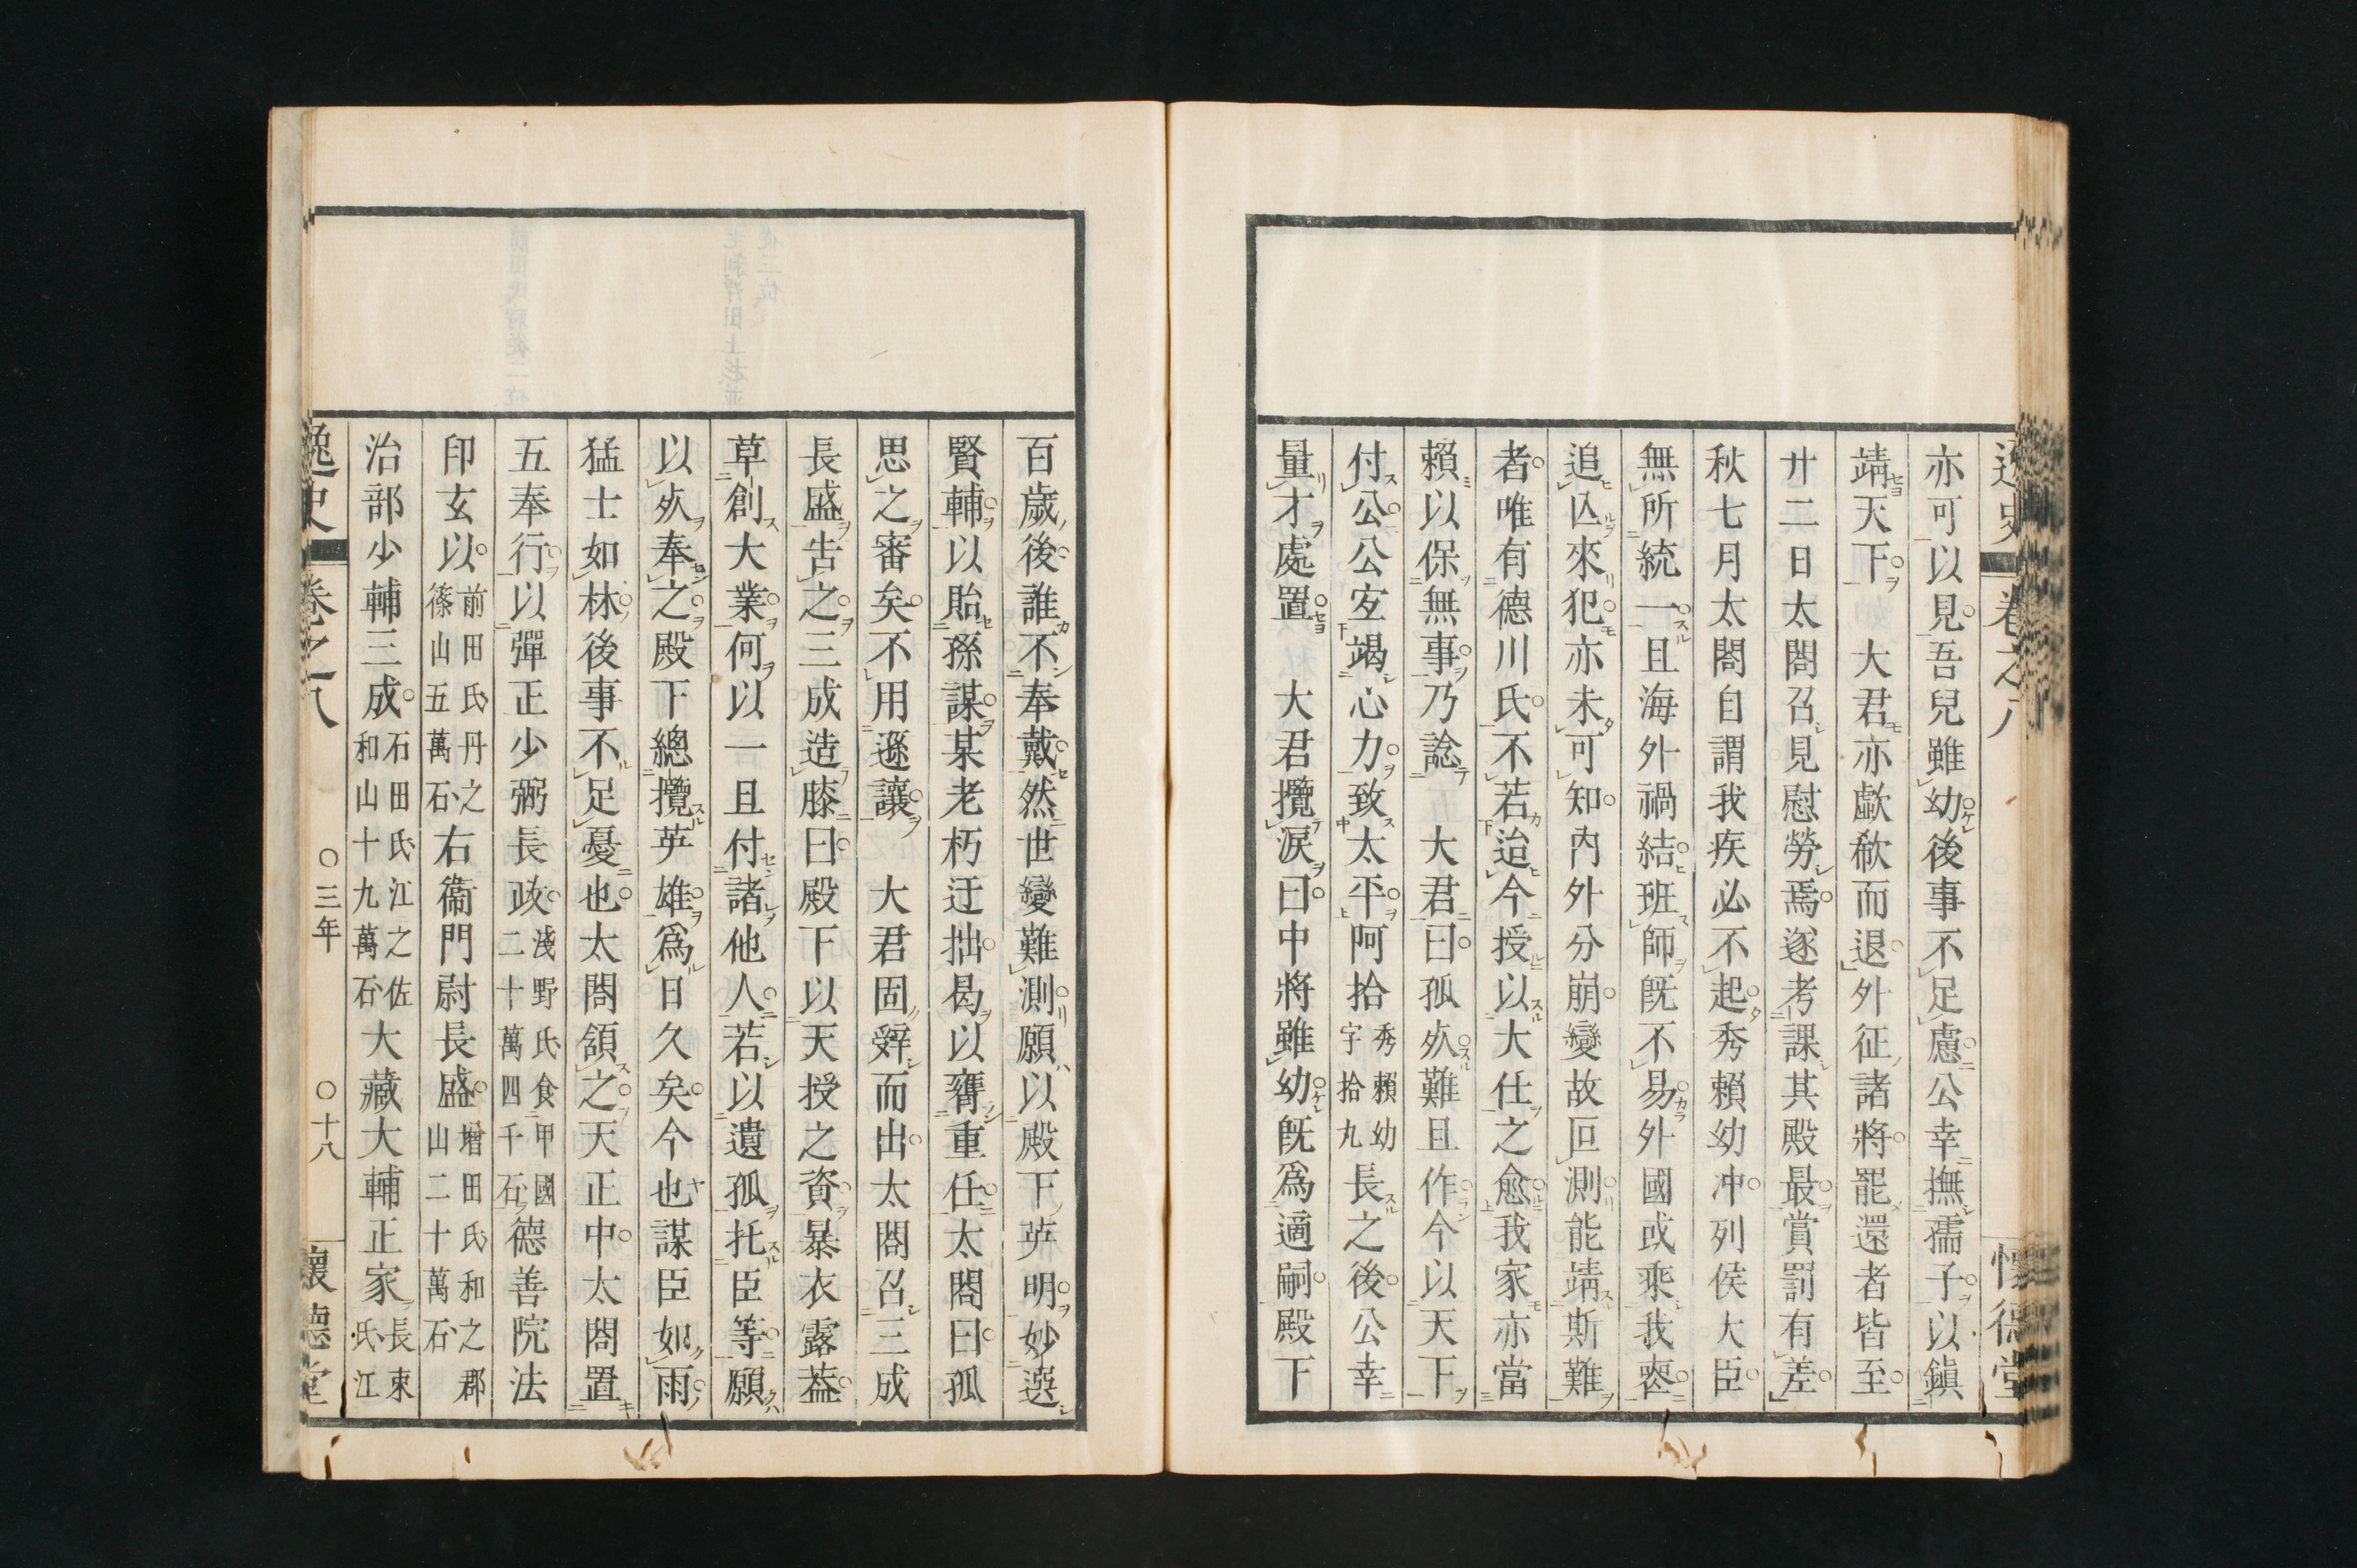 逸史 卷之八 懷德堂
亦可以見吾兒雖幼後事不足慮公幸撫孺子以鎭
靖天下 大君亦歔欷而退外征諸將罷還者皆至
廿二日太閤召見慰勞焉遂考課其殿最賞罰有差
秋七月太閤自謂我疾必不起秀賴幼冲列侯大臣
無所統一且海外禍結班師旣不易外國或乘我喪
追亾來犯亦未可知內外分崩變故叵測能靖斯難
者唯有德川氏不若迨今授以大仕之愈我家亦當
賴以保無事乃諗 大君曰孤夾難且作今以天下
付公公宜竭心力致太平阿拾秀賴幼字拾丸長之後公幸
量才處置 大君攬淚曰中將雖幼旣爲適嗣殿下
百歲後誰不奉戴然世變難測願以殿下英明妙選
賢輔以貽孫謀某老朽迂拙曷以膺重任太閤曰孤
思之審矣不用遜讓 大君固辭而出太閤召三成
長盛告之三成造膝曰殿下以天授之資暴衣露葢
草創大業何以一旦付諸他人若以遺孤托臣等願
以夾奉之殿下總攬英雄爲日久矣今也謀臣如雨
猛士如林後事不足憂也太閤頷之天正中太閤置
五奉行以彈正少弼長政淺野氏食甲國二十萬四千石德善院法
印玄以前田氏丹之篠山五萬石右衞門尉長盛增田氏和之郡山二十萬石
治部少輔三成石田氏江之佐和山十九萬石大藏大輔正家長束氏江
逸史 卷之八 〇三年 〇十八 懷德堂